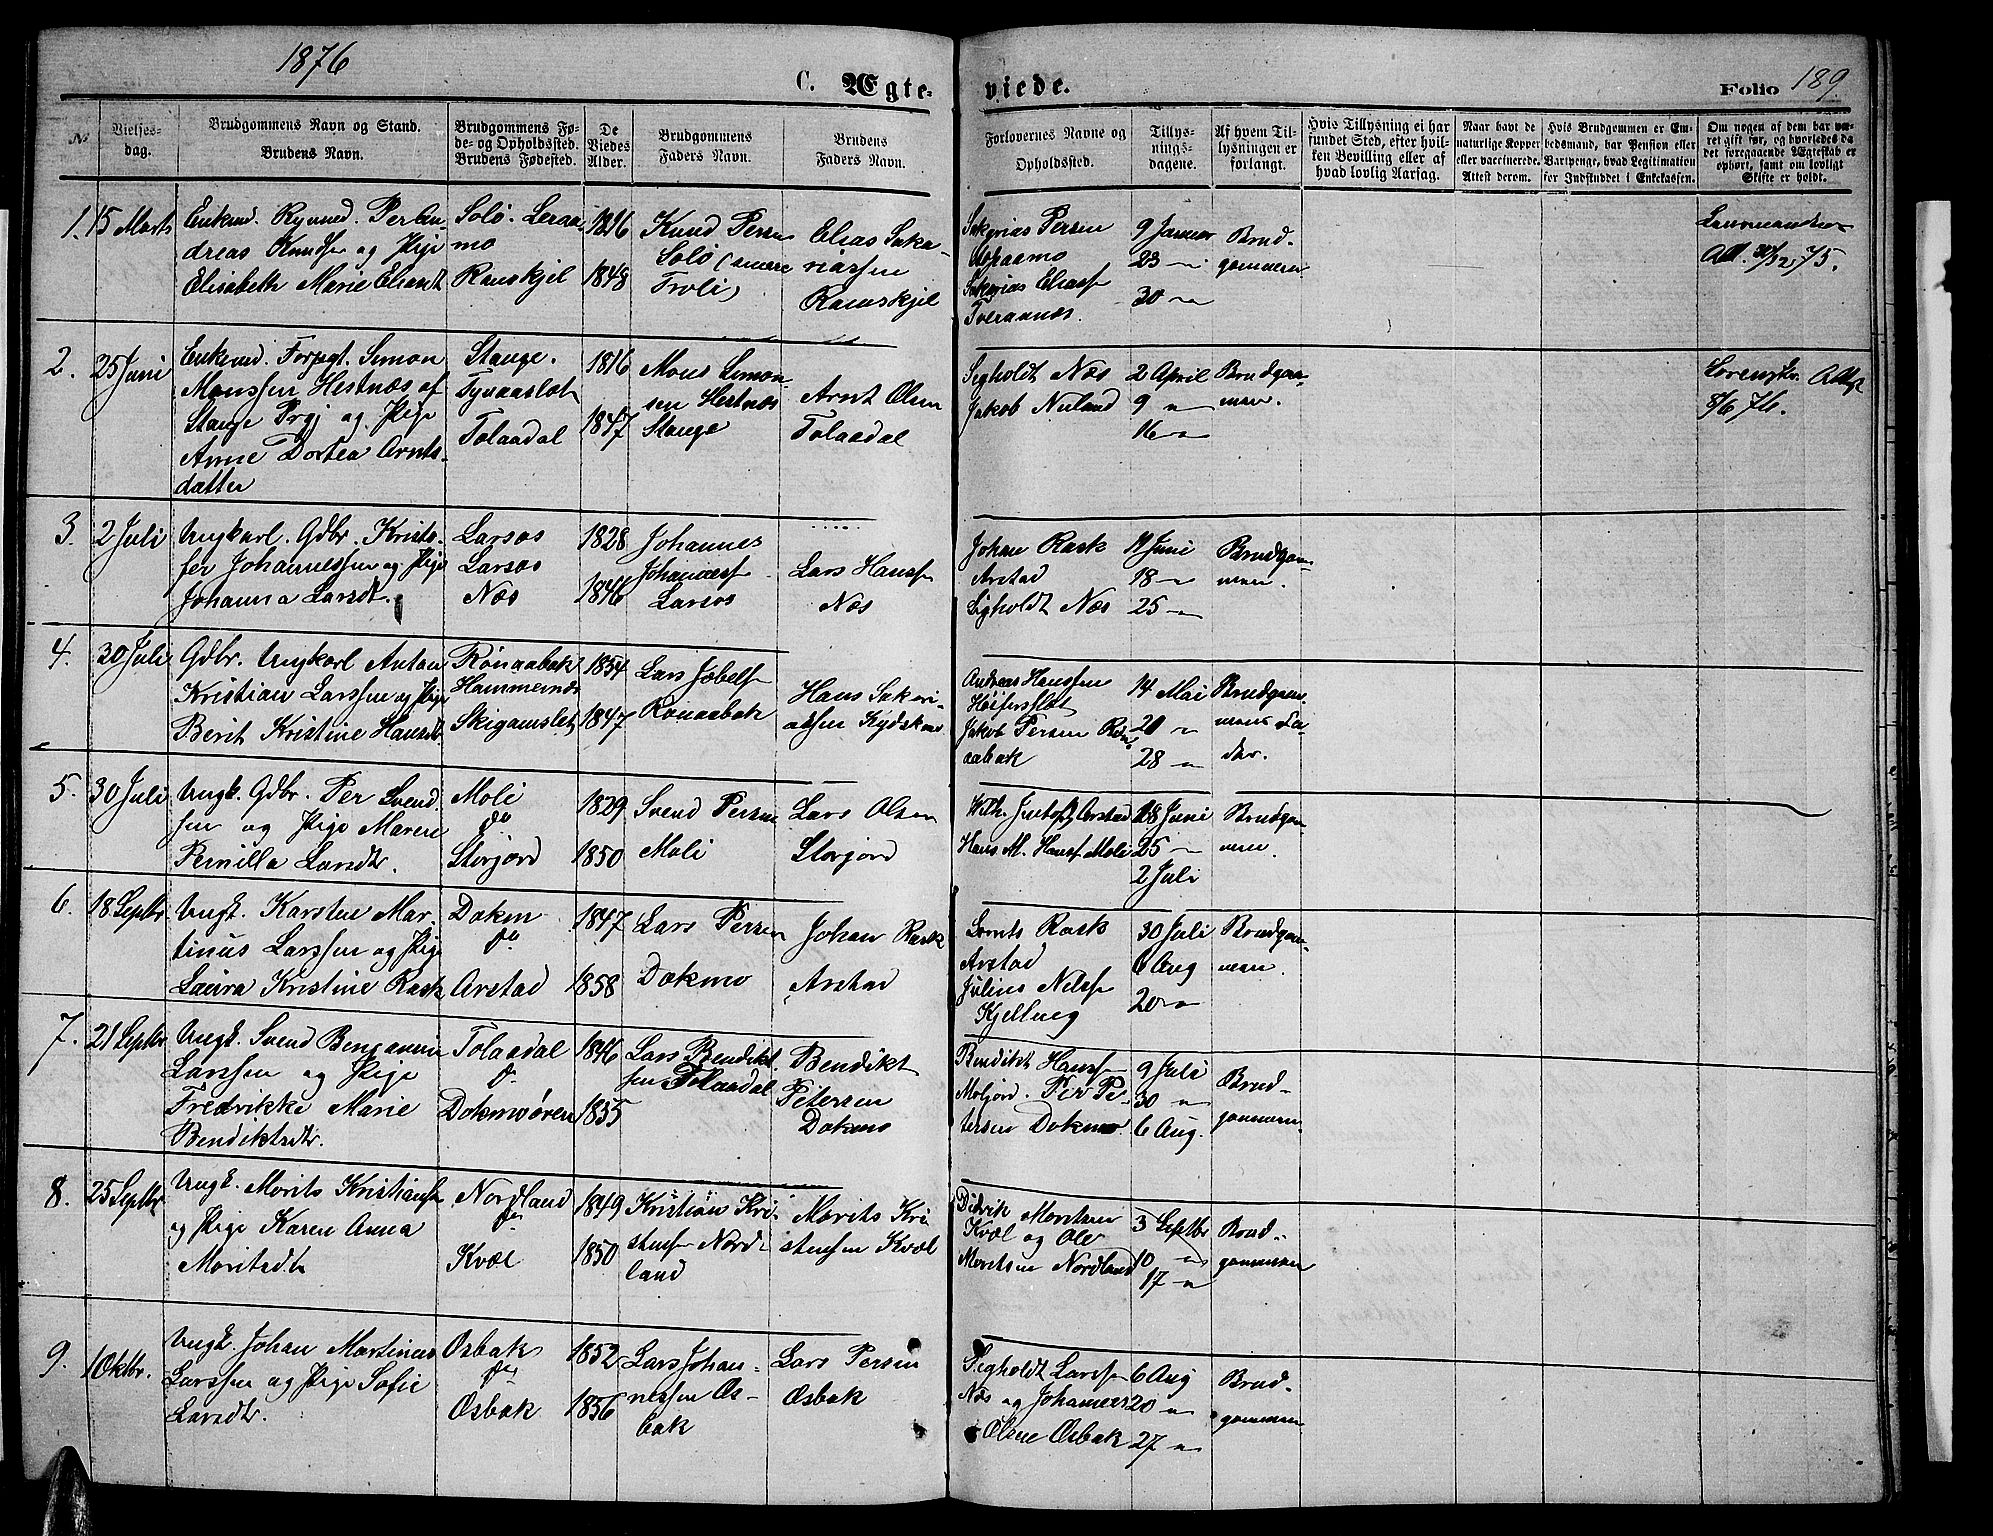 1876
C. Ægte-
viede.
Folio 189.
№
Vielses-
dag.
Brudgommens Navn og Stand.
Brudens Navn.
Brudgommens Fø-
de- og Opholdssted.
Brudens Fødested.
De
Viedes
Alder.
Brudgommens
Faders Navn.
Brudens
Faders Navn.
Forlovernes Navne og
Opholdssted.
Tillys-
nings-
dagene.
Af hvem Til-
lysningen er
forlangt.
Hvis Tillysning ei har
fundet Sted, efter hvil-
ken Bevilling eller af
hvad lovlig Aarsag.
Naar havt de
naturlige Kopper
eller vaccinerede.
Attest derom.
Hvis Brudgommen er Em-
bedsmand, har Pension eller
Vartpenge, hvad Legitimation
for Indskuddet i Enkekassen.
Om nogen af dem har væ-
ret gift før, og hvorledes da
det foregaaende Ægteskab er
ophørt, samt om lovligt
Skifte er holdt.
1. 15 Marts
Enkemd. Per An-
dreas Knudsen og Pige
Elisabeth Marie Eliasdt
Solø.
mo
Ranskjel
1816
1848
Knud Persen
Solø (
Troli)
Elias Saka-
riassen
Ramskjel
Sakarias Persen
Sakarias Eliass
Tveraanæs.
9 Januar
23 —
30 —
Brud-
gommen
Att. 30/12 75.
2. 25 Juni
Enkemd. Forpgt. Simon
Monssen Hestnæs af
Stange Prgj og Pige
Anne Dortea Arnts-
datter
Stange.
Tolaadal
1816
1847
Mons Simon-
sen Hestnæs
Stange
Arnt Olsen
Tolaadal
Sigholdt Næs
Jakob Nuland
2 April
9 —
16 —
Brudgom-
men.
8/6 76.
3. 2 Juli
Ungkarl. Gdbr. Kristo-
fer Johannessen og Pige
Johanna Larsdt.
Larsos
Larsos
Næs
1828
1846
Johannes
Johanness
Larsos
Lars Hanss
Næs
Johan Rask
Arstad
Sigholdt Næs
11 Juni
18 —
25 —
Brudgom-
men.
4. 30 Juli
Gdbr. Ungkarl Anton
Kristian Larssen og Pige
Berit Kristine Hansdt.
Rønaabak
Hammernæs
Skigamslet
1854
1847
Lars Jøbels
Rønaabak
Hans Sakari-
assen
Andreas Hanssen
Jakob Persen Røn-
aabak
14 Mai
21 —
28 —
Brudgom-
mens Fa-
der.
5. 30 Juli
Ungk. Gdbr. Per Svend-
sen og Pige Maren
Pernilla Larsdtr.
Moli
do
Storjord
1829
1850
Svend Persen
Moli
Lars Olsen
Storjord
Arstad
Hans M. Hanss Moli
18 Juni
25 —
2 Juli
Brudgom-
men.
6. 18 Septbr
Ungk. Karsten Mar-
tinus Larssen og Pige
Laura Kristine Rask
Dokm
do
Arstad
1847
1858
Lars Persen
Dokmo
Johan Rask
Arstad
Rask
Arstad
Julius Nilss
Kjelling
30 Juli
6 Aug
20 —
Brudgom-
men.
7. 21 Septbr
Ungk. Svend Benjamin
Larssen og Pige
Fredrikke Marie
Bendiktsdtr.
Tolaadal
do
Dokmoøren
1846
1855
Lars Bendikt-
sen Tolaadal
Bendikt
Petersen
Dokmo
Bendikt Hanss
Moljord. Per Pe-
tersen Dokmo.
9 Juli
30 —
6 Aug.
Brud-
gommen.
8. 25 Septbr
Ungk. Morits Kristians
og Pige Karen Anna
Moritsdtr
Nordland
do
Kvæl
1849
1850
Kristian Kri-
stenss Nord-
land
Morits Kri
stensen Kvæl
Didrik Moritsen
Kvæl og Ole
Moritsen Nordland
3 Septbr
10 —
17 —
Brud-
gommen
9. 1 Oktbr.
Ungk. Johan Martinus
Larssen og Pige Sofie
Larsdtr.
Osbak
do
Osbak
1852
1856
Lars Johan-
nessen Os-
bak
Lars Persen
Osbak
Sigholdt Larss
Næs og Johannes
Olsen Osbak
6 Aug
20 —
27 —
Brud-
gommen